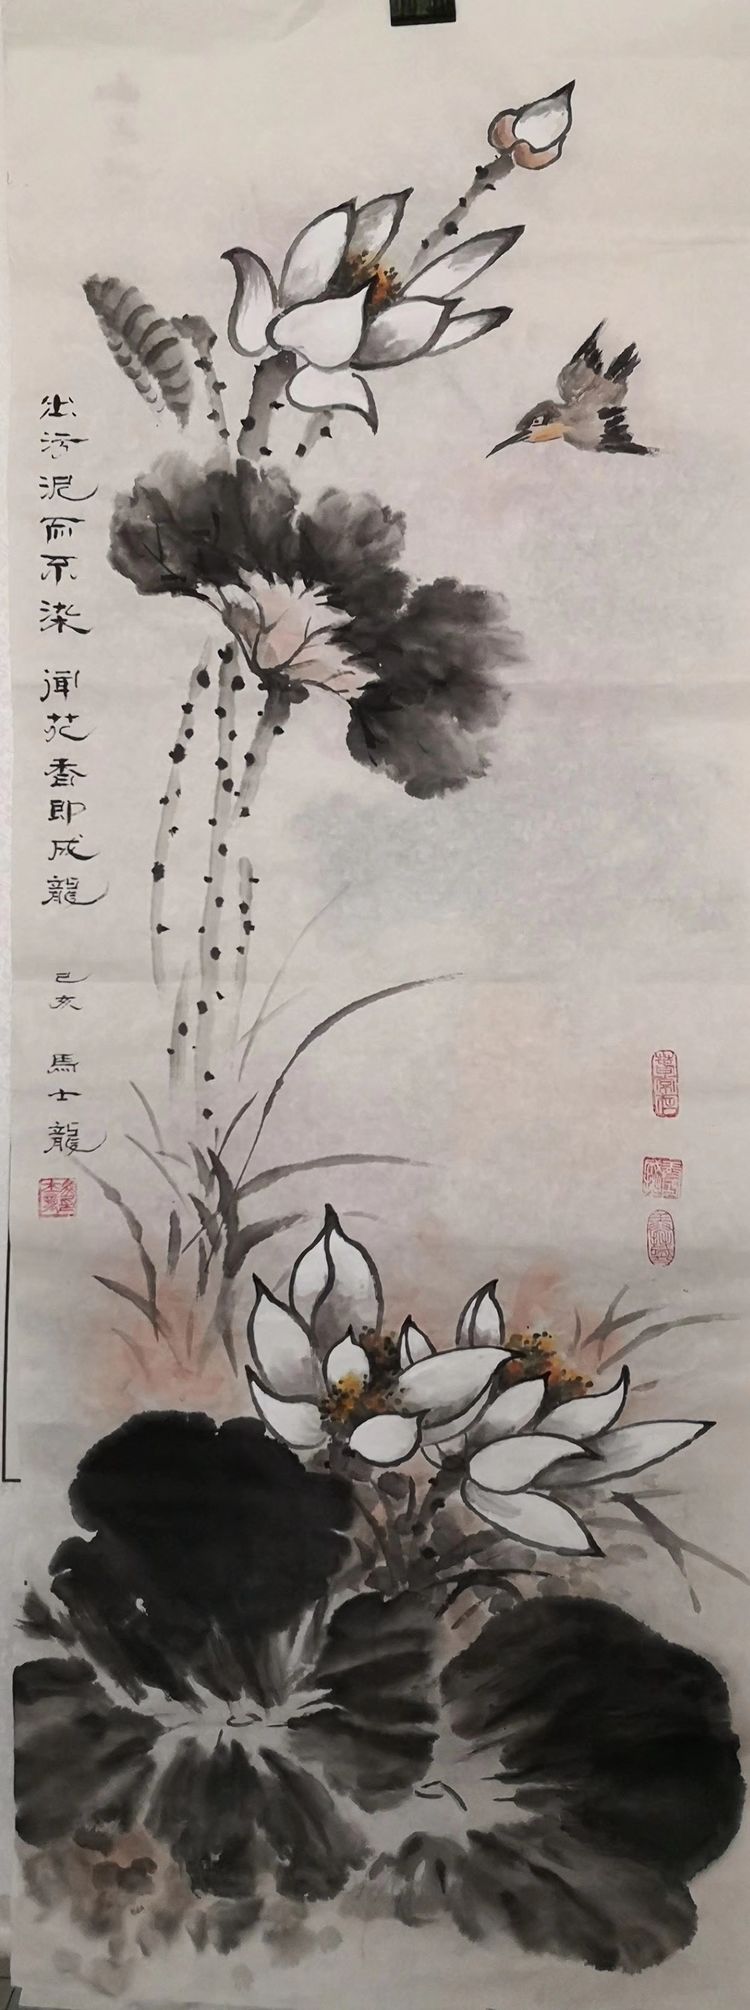 出污泥而不染 聞花香即成龍 己亥 馬士龍